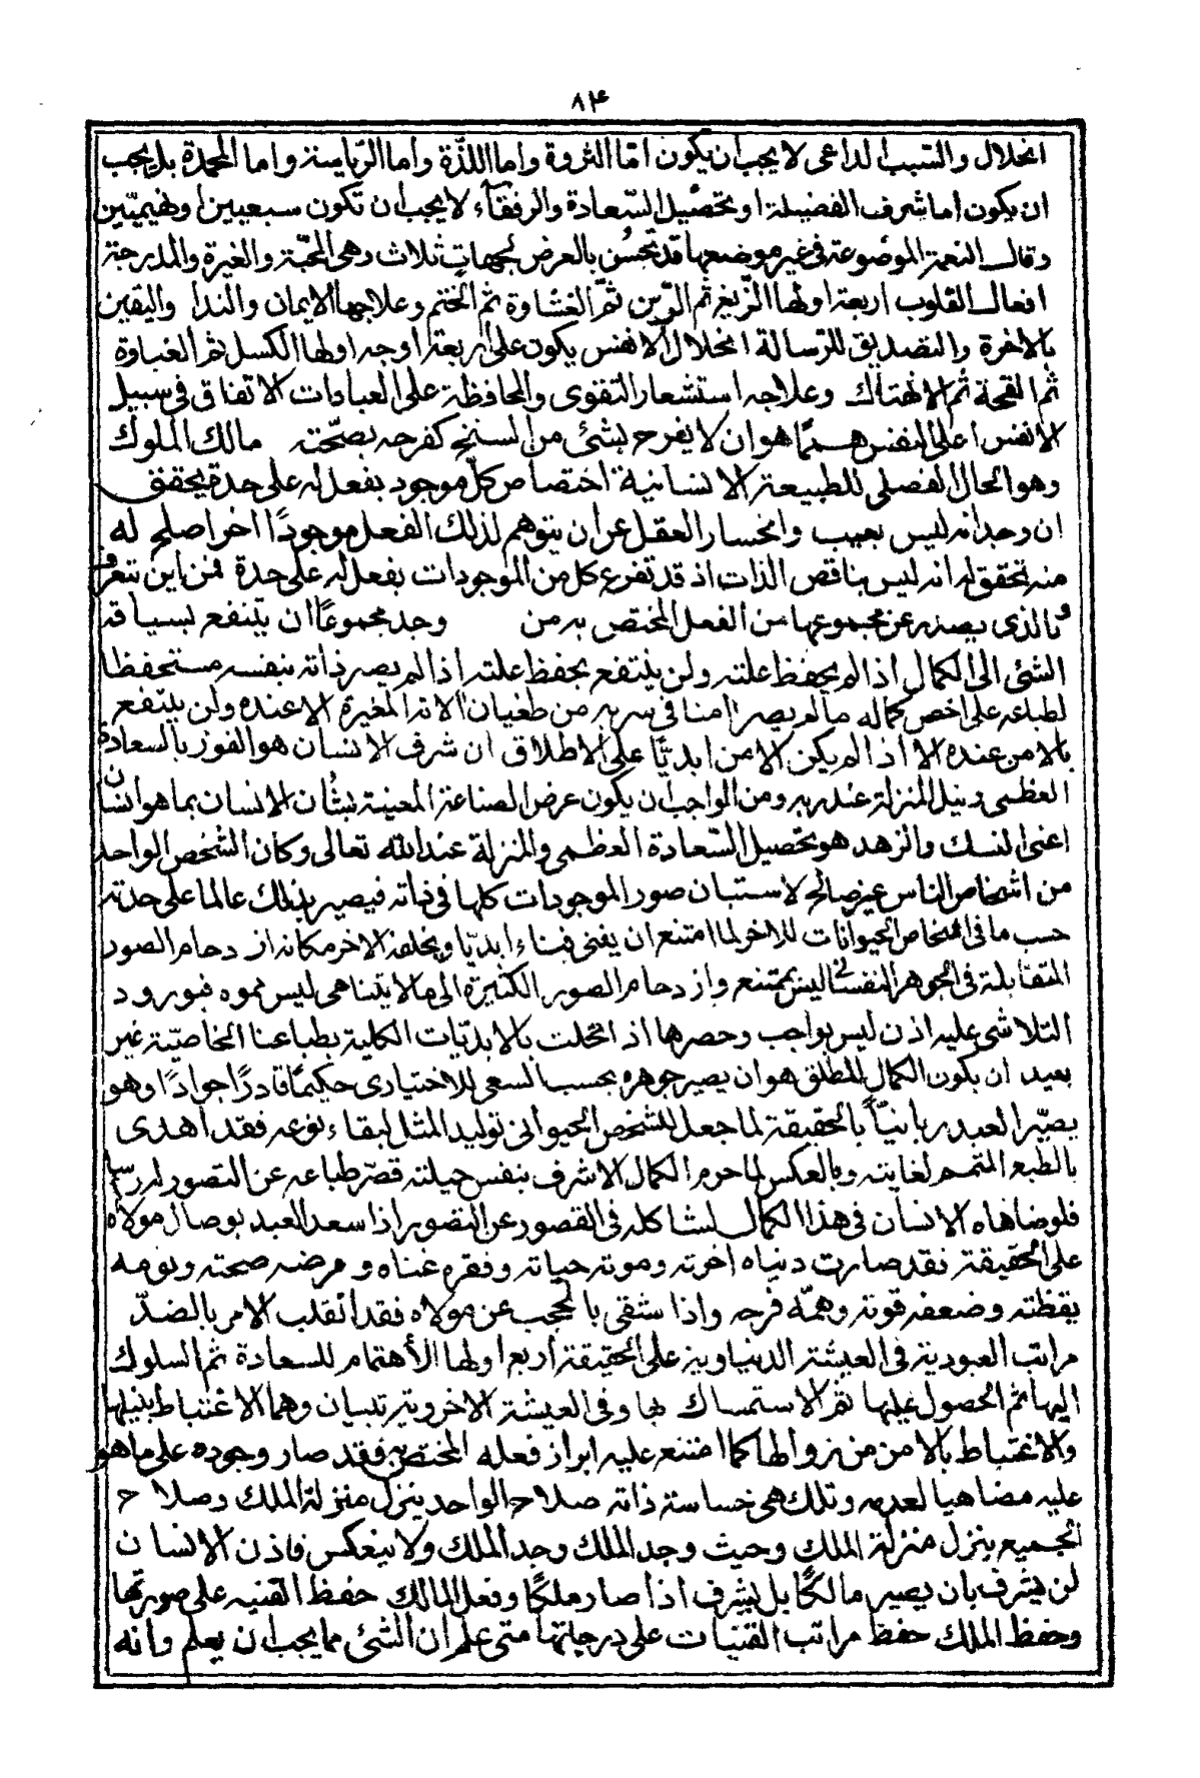 ٨۴
انحلال والسبب الداعى لا يجب ان يكون امّا الثروة واما اللذّة واما الرّياسة واما المحمدة بل يجب
ان يكون اما شرف الفضيلة او تحصيل السّعادة والرفقآء لا يجب ان تكون سبعيين او بهيميّين
وقال النعمة الموضوعة فى غير موضعها قد تحسُن بالعرض لجهاتٍ ثلاث وهى المحبّة والغيرة والمدرجة
افعال القلوب اربعة اولها الزّيغ ثم الرّين ثمّ الغشاوة ثم الختم وعلاجها الايمان والندا واليقين
بالاخرة والتصديق للرّسالة انحلال الانفس يكون على اربعة اوجه اولها الكسل ثم الغباوة
ثم القحة ثم الانهتاك وعلاجه استشعار التقوى والمحافظة على العبادات الاتفاق فى سبيل
الانفس اعلى النفس همًّا هو ان لا يفرح بشئ من السنح كفرحه بصحّته مالك الملوك
وهو الحال الفصلى للطبيعة الانسانية اختصاص كلّ موجود بفعل له على حدة يحقق
ان وجدانه ليس بعيب وانحسار العقل عن ان يتوهم لذلك الفعل موجودًا اخر اصلح له
منه تحقق له انه ليس بناقص الذات اذ قد تفرع كل من الموجودات بفعل له على حدة فمن اين نتعرف
بالذى يصدر عن مجموعها من الفعل المختص به من وجد مجموعًا ان ينتفع بسياقة
الشئ الى الكمال اذا لم يحفظ علته ولن ينتفع بحفظ علته اذا لم يصر ذاته بنفسه مستحفظا
لطباعه على اخص كماله ما لم يصر امنا فى سربه من طغيان المغيرة الا عنده ولن ينتفع
بالامن عنده الا اذا لم يكن الامن ابديّا على الاطلاق ان شرف الانسان هو الفوز بالسعادة
العظمى ونيل المنزلة عند ربه ومن الواجب ان يكون عرض الصناعة المعينة بشأن الانسان بما هو انسان
اعنى النسك والزهد هو تحصيل السّعادة العظمى والمنزلة عند الله تعالى وكان الشخص الواحد
من اشخاص الناس غير صالح لاستبان صور الموجودات كلها فى ذاته فيصير بذلك عالما على حدته
حسب ما فى اشخاص الحيوانات للاخر لما امتنع ان يفنى فناء ابديّا ويخلفه الاخر مكانه ازدحام الصور
المتقابلة فى الجوهر النفسانى ليس بممتنع وازدحام الصور الكثيرة الى ما لا يتناهى ليس مموه فبورود
التلاشى عليه اذن ليس بواجب وحصرها اذ انحلت بالابديّات الكلية بطباعنا الخاصيّة غير
بعيد ان يكون الكمال المطلق هو ان يصير جوهره بحسب السعى الاختيارى حكيمًا قادرًا جوادًا وهو
يصيّر العبد ربانيّاً بالحقيقة لما جعل للشخص الحيوانى توليد المثل لبقاء نوعه فقد اهدى
بالطبع المتمم لغايته وبالعكس لما حرم الكمال الاشرف بنفس جبلته قصّر طباعه عن التصور له
فلو ضاهاه الانسان فى هذا الكمال لشاكله فى القصور عن التصور اذا سعد العبد بوصال مولاه
على الحقيقة فقد صارت دنياه اخرته وموته حياته وفقره غناه ومرضه صحته ونومه
يقظته وضعفه قوته وهمّه فرحه واذا شقى بالحجب عن مولاه فقد انقلب الامر بالضدّ
مراتب العبودية فى العيشة الدنياوية على الحقيقة اربع اولها الاهتمام للسعادة ثم السلوك
اليها ثم الحصول عليها ثم الاستمساك بها وفى العيشة الاخروية رتبتان وهما الاغتباط بنيلها
والاغتباط بالامن من زوالها كما امتنع عليه ابراز فعله المختص به فقد صار وجوده على ما هو
عليه مضاهيا لعدمه وتلك هى خساسة ذاته صلاح الواحد ينزل منزلة الملك وصلاح
الجميع ينزل منزلة الملك وحيث وجد الملك وجد الملك ولا ينعكس فاذن الانسان
لن يشرف بان يصير مالكًا بل يشرف اذا صار ملكًا وفعل المالك حفظ القنيه على صورتها
وحفظ الملك حفظ مراتب القنيات على درجاتها متى علم ان الشئ مما يجب ان يعلم وانه